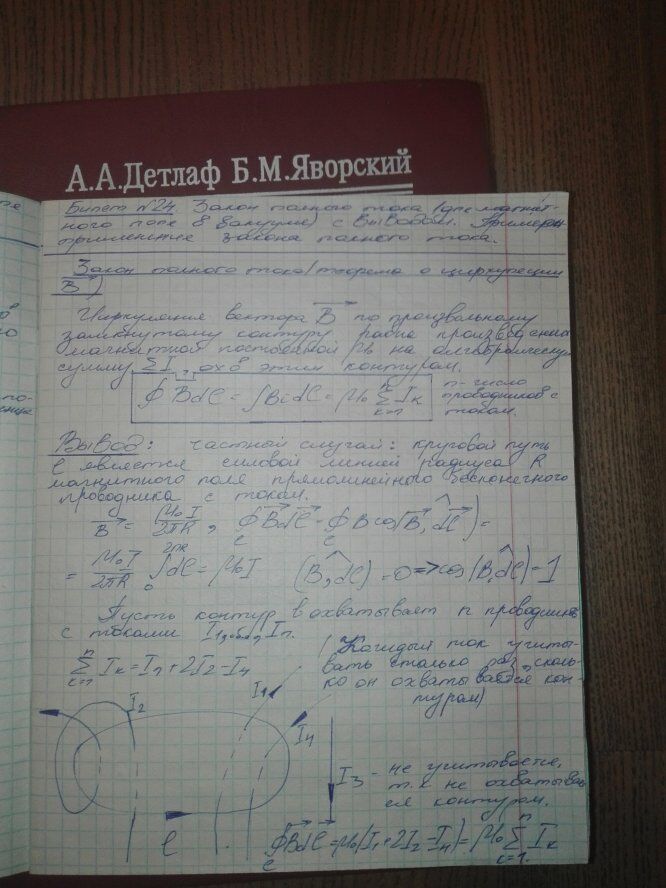 А.А.Детлаф Б.М.Яворский
Билет №24. Закон полного тока (для магнит-
ного поля в вакууме) с выводом. Примеры
применения закона полного тока.
Закон полного тока (теорема о циркуляции
B⃗)
Циркуляция вектора B⃗ по произвольному
замкнутому контуру равна произведению
магнитной постоянной μ₀ на алгебраическую
сумму ΣI, охв этим контуром.
∮B⃗dℓ⃗ = ∫Bₑdℓ = μ₀ Σₖ₌₁ⁿ Iₖ
n-число
проводников с
током.
Вывод: частный случай: круговой путь
ℓ является силовой линией радиуса R
магнитного поля прямолинейного бесконечного
проводника с током.
B⃗ = μ₀I/2πR, ∮B⃗dℓ⃗ = ∮B cos(B⃗, dℓ⃗) =
= μ₀I/2πR ∫₀²πᴿ dℓ = μ₀I (B, dℓ) = 0 => cos(B, dℓ) = 1
Пусть контур охватывает n проводник
с токами Iₙ.
Σₖ₌₁ⁿ Iₖ = I₁ + 2I₂ - I₄
(Каждый ток учиты-
вать столько раз, сколь-
ко он охватывается кон-
туром)
I₂
I₁
I₄
I₃ - не учитывается,
т.к не охватывае
ся контуром.
ℓ
∮B⃗dℓ⃗ = μ₀(I₁ + 2I₂ - I₄) = μ₀ Σₖ₌₁ⁿ Iₖ